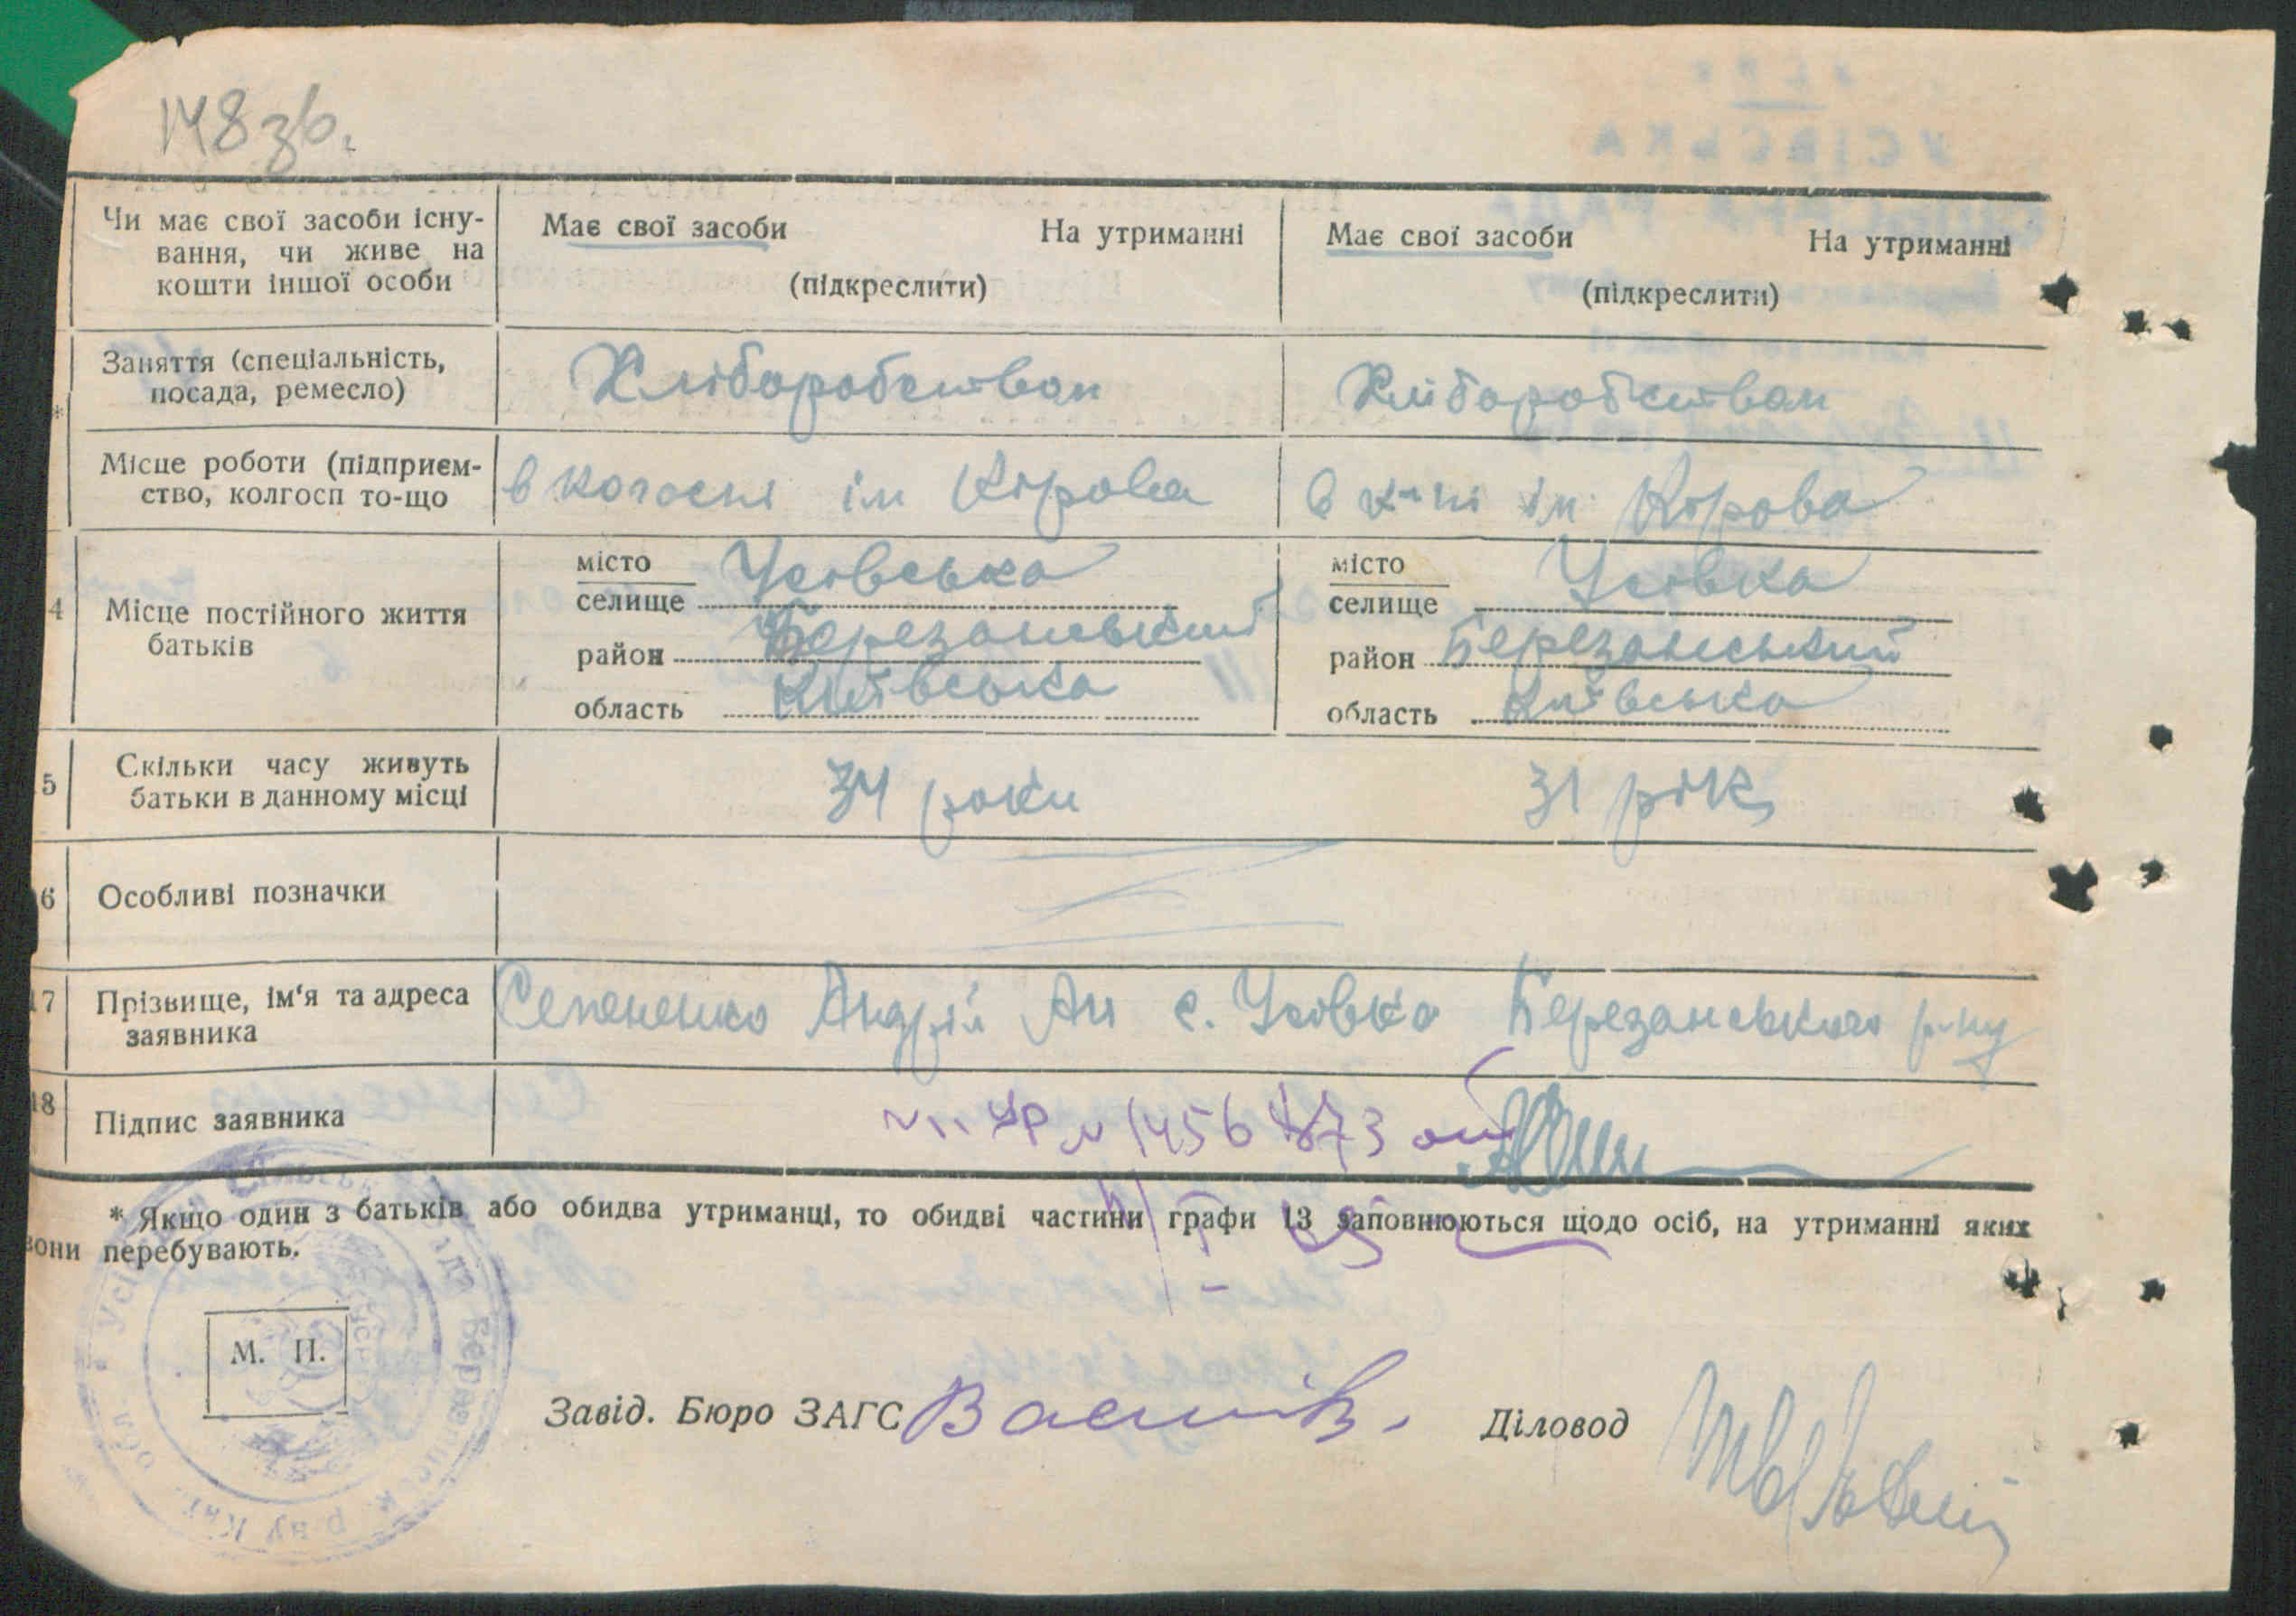 148 зв.
Чи має свої засоби існу-
вання, чи живе на
кошти іншої особи
Має свої засоби На утриманні
(підкреслити)
Має свої засоби На утриманні
(підкреслити)
*
Заняття (спеціальність,
посада, ремесло)
Хліборобством
Хліборобством
Місце роботи (підприєм-
ство, колгосп то-що
в колгоспі ім Кірова
в к-пі ім Кірова
4
Місце постійного життя
батьків
місто
селище Усівська
район Березанський
область Київська
місто
селище Усівка
район Березанський
область Київська
5
Скільки часу живуть
батьки в данному місці
34 роки
31 рік
6
Особливі позначки
17
Прізвище, ім'я та адреса
заявника
Андрій Ан с. Усівка Березанського р-ну
18
Підпис заявника
* Якщо один з батьків або обидва утриманці, то обидві частини графи 13 заповнюються щодо осіб, на утриманні яких
вони перебувають.
М. П.
Завід. Бюро ЗАГС
Діловод